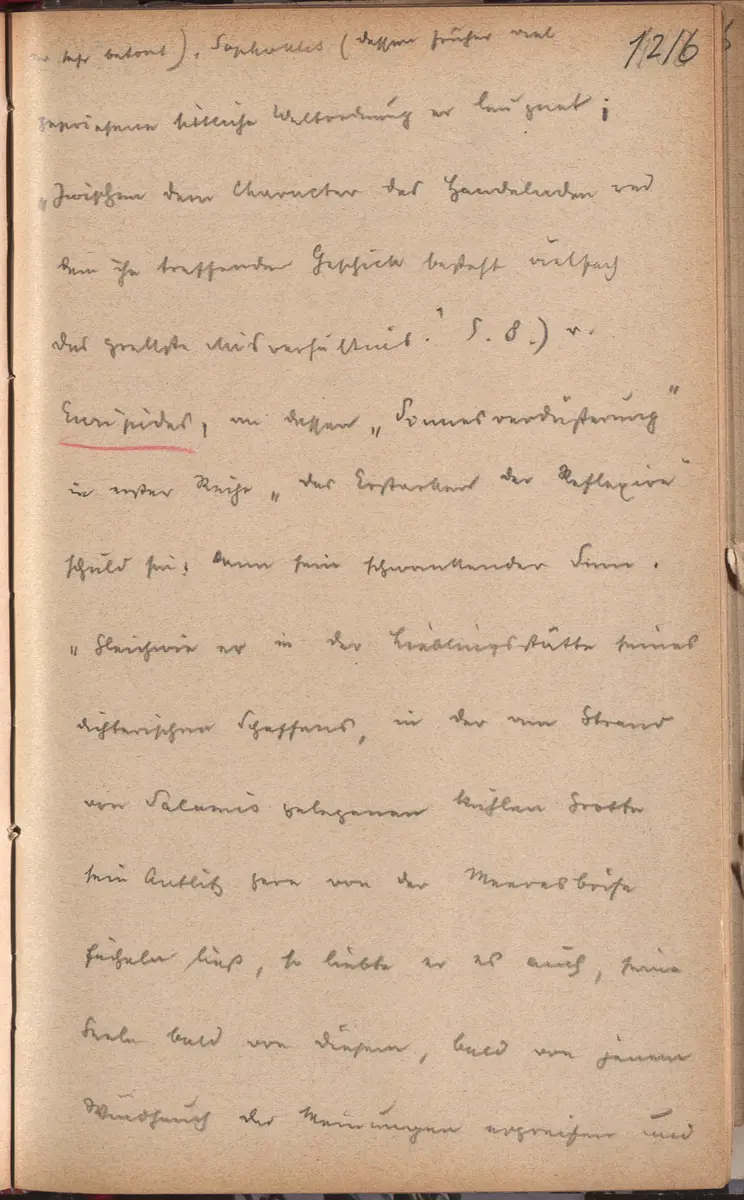 1216
so sehr betont), Sophokles (dessen früher viel
gepriesene sittliche Weltordnung er leugnet;
„Zwischen dem Character des Handelnden und
dem ihn treffenden Geschick besteht vielfach
das grellste Misverhältnis." S. 8.) u.
Euripides, an dessen „Sinnesverdüsterung"
in erster Reihe „das Erstarken der Reflexion"
schuld sei; dann sein schwankender Sinn.
„Gleichwie er in der Lieblingsstätte seines
dichterischen Schaffens, in der am Strand
von Salamis gelegenen kühlen Grotte
sein Antlitz gern von der Meeresbrise
fächeln ließ, so liebte er es auch, seine
Seele bald von diesem, bald von jenem
Windhauch der Meinungen ergreifen und